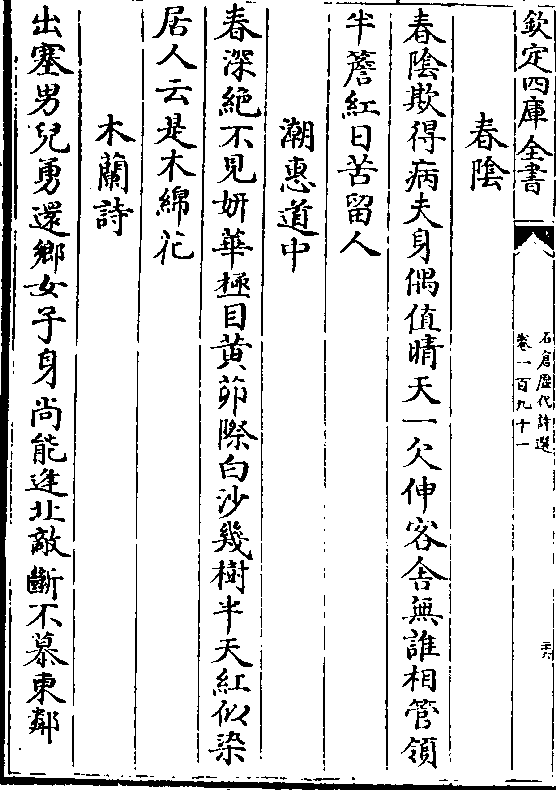 欽定四庫全書
石倉歴代詩選
卷一百九十一
二六
春陰
春陰欺得病夫身偶值晴天一欠伸客舎無誰相管領
半簷紅日苦留人
潮惠道中
春深絶不見妍華極目黄茆際白沙幾樹半天紅似染
居人云是木綿花
木蘭詩
出塞男兒勇還鄉女子身尚能逹北敵斷不慕東鄰